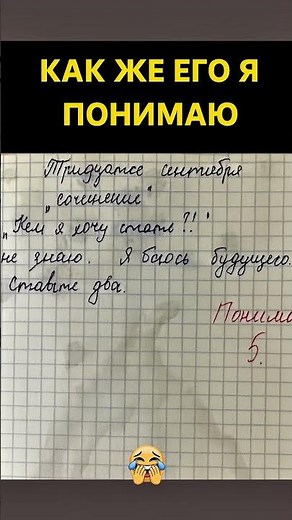 КАК ЖЕ ЕГО Я
ПОНИМАЮ
Тридцатое сентября
„сочинение“
„Кем я хочу стать?!"
не знаю. Я боюсь будущего.
Ставьте два.
Понима
5.